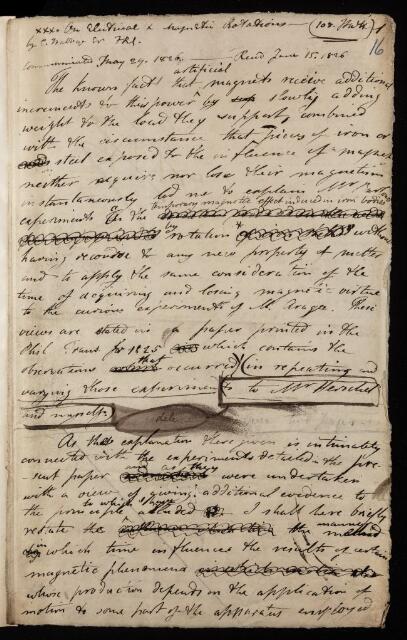 xxxo On Electrical & Magnetic Rotations — (108. Math. 1
by C. Babbage Esq FRS. 16
Communicated May 29. 1826 — Read June 15. 1826
artificial
The known fact that magnets receive additional
increments to their power by slowly adding
weight to the load they support, combined
with the circumstance that pieces of iron or
steel exposed to the influence of a magnet
neither acquire nor lose their magnetism
instantaneously led me to explain Mr
temporary magnetic effect induced in iron bodies
experiments on the
by rotation without
having recourse to any new property of matter
and to apply the same consideration of the
time of acquiring and losing magnetic virtue
to the curious experiments of M. Arago. These
views are stated in a paper printed in the
Phil Trans for 1825 which contains the
observations that occurred in repeating and
varying those experiments to Mr Herschel
and myself dele
As the explanation there given is intimately
connected with the experiments detailed in the pre-
sent paper and as they were undertaken
with a view of giving additional evidence to
to which I have
the principle alluded I shall here briefly
restate the the manner
in which time influences the results of certain
magnetic phenomena
whose production depends on the application of
motion to some part of the apparatus employed